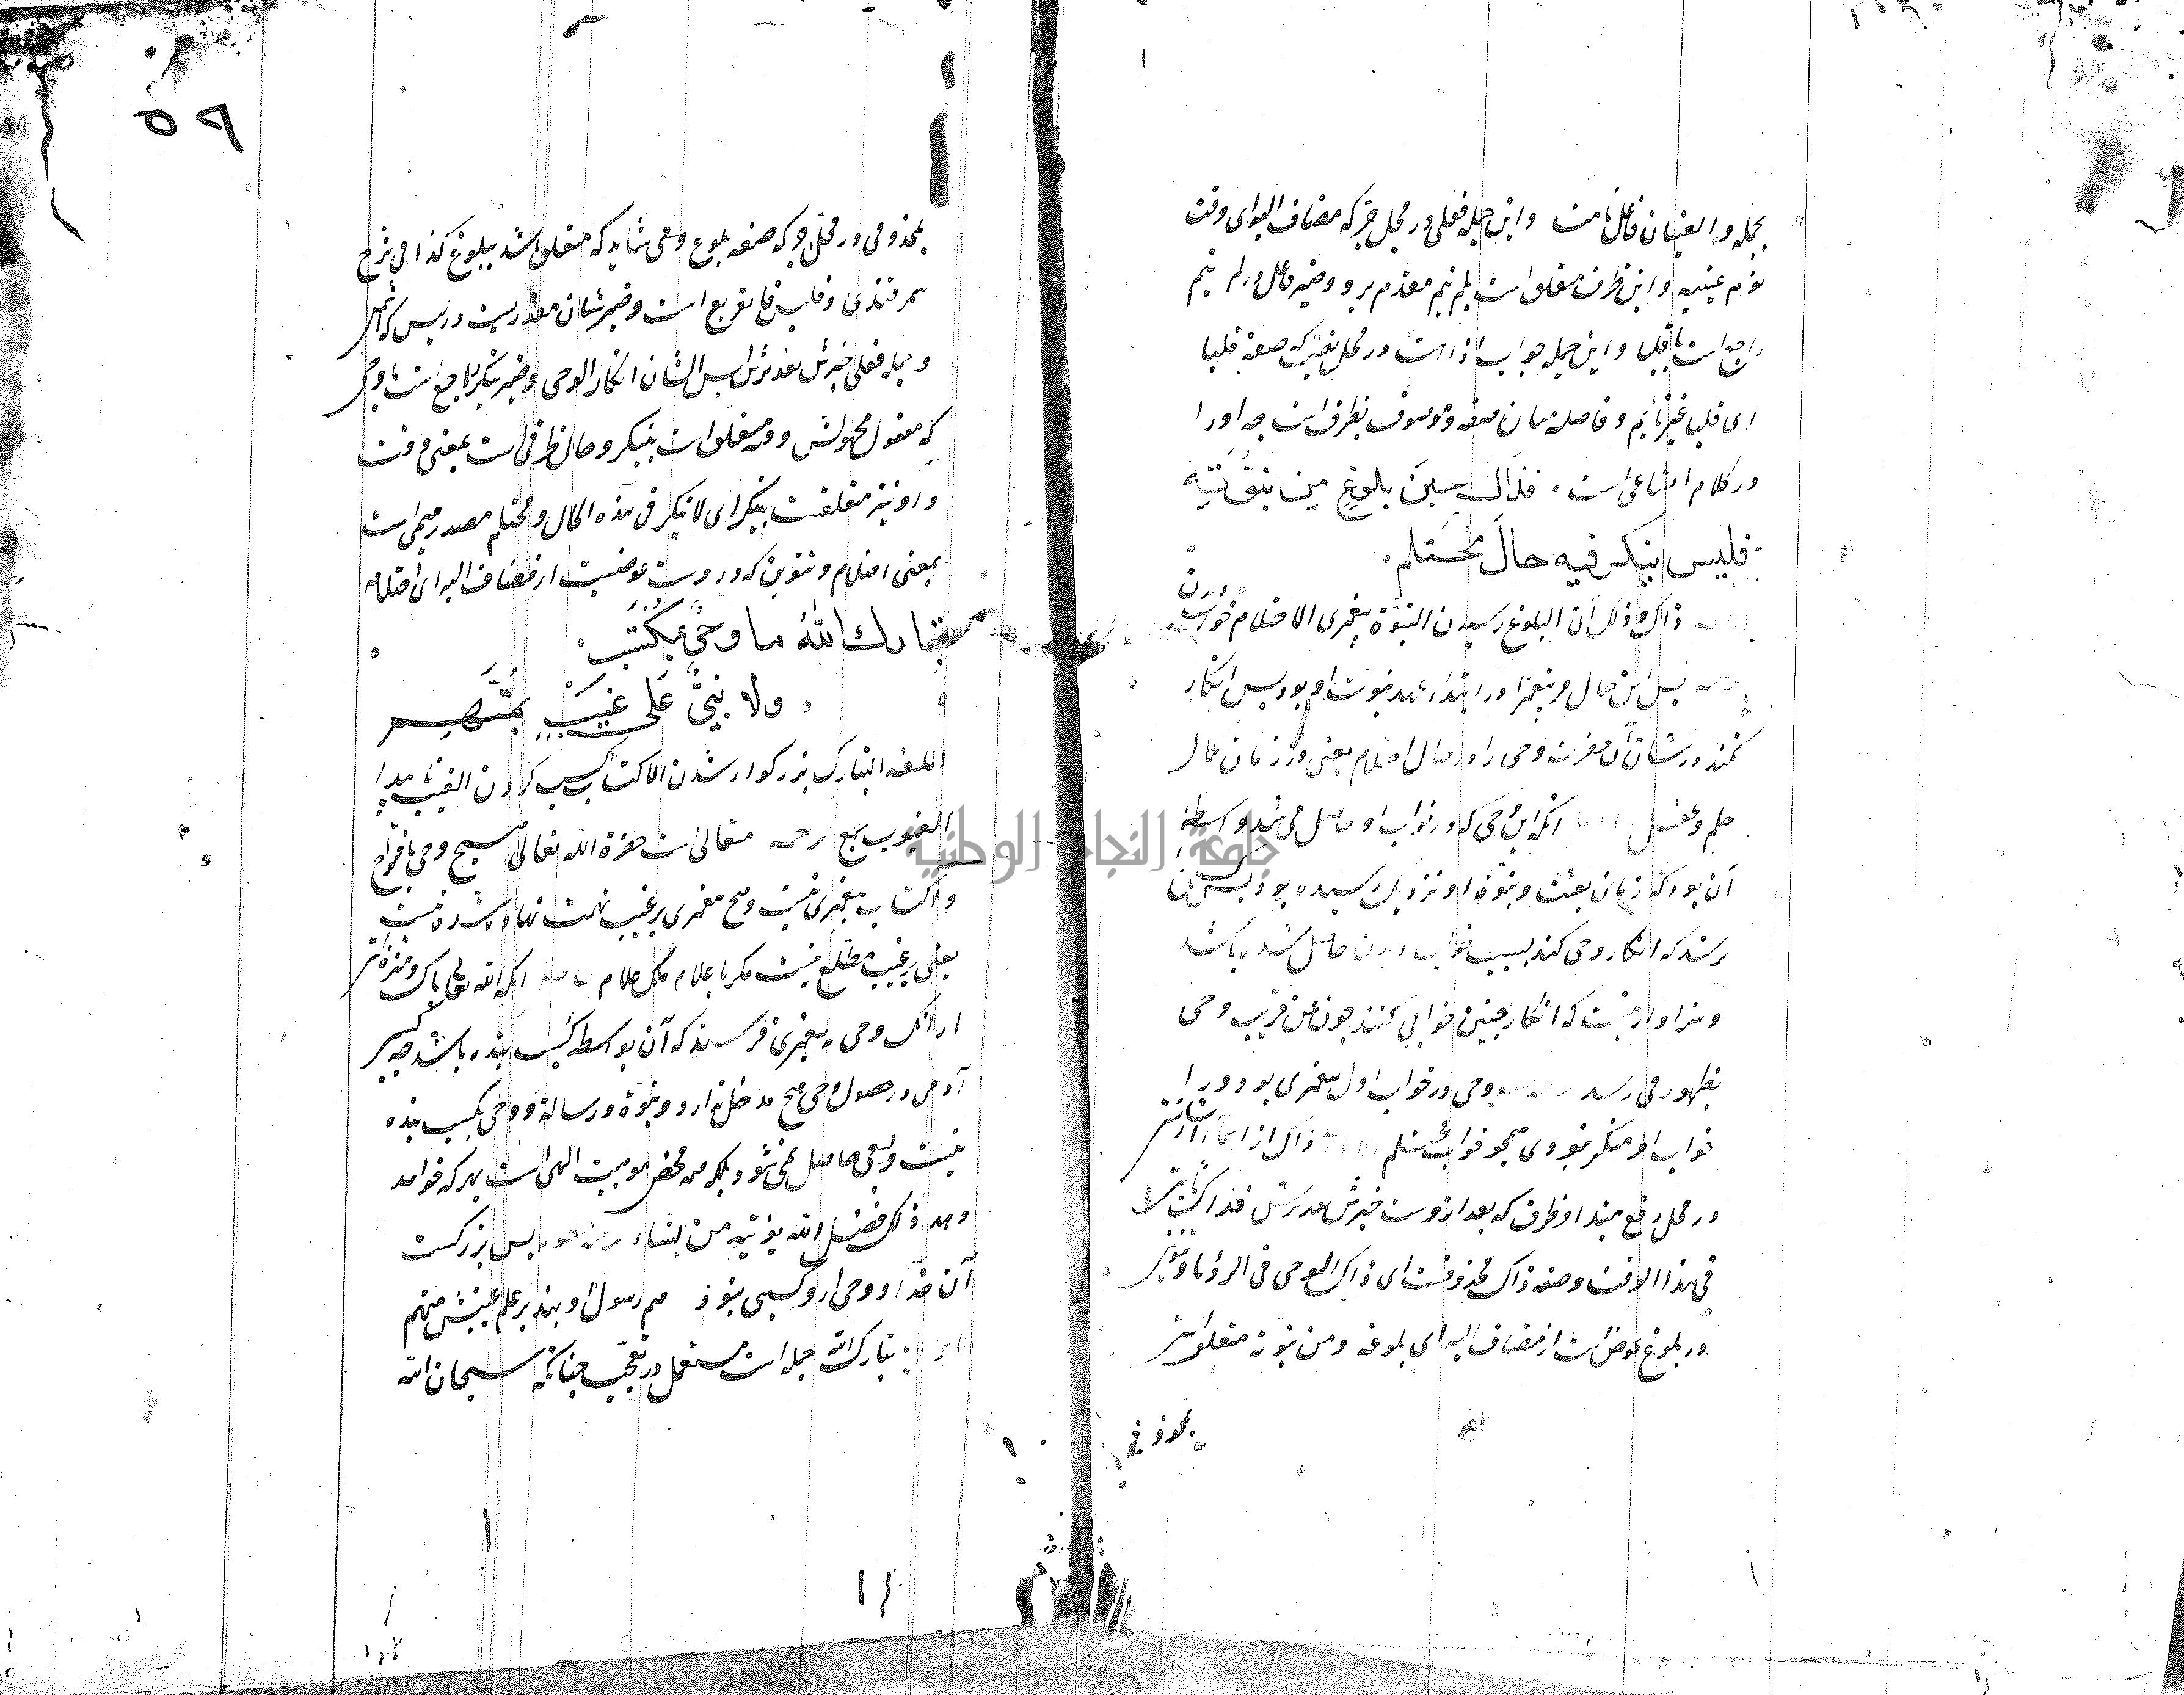 بجمله والعینان فاعل نامت واین جمله فعلی در محل جر که مضاف الیه ای وقت
نوم عینیه و این ظرف متعلق است بلم ینم مقدم برو و ضمیر فاعل در لم ینم
راجع است با قلبا و این جمله جواب اذا است در محل نصب که صفة قلبا
ای قلبا غیر نایم و فاصله میان صفه و موصوف بظرف است چه او را
در کلام اتساعی است . فذاك حين بلوغٍ من نبوّته
فليس ينكر فيه حال محتلم .
ذاك و ذلک آن البلوغ رسیدن النبوة پیغمبری الاحتلام خواب
دیدن
پس این حال مر پیغمبر را در ابتداء عهد نبوت او بود پس انکار
نکنند در شان آن حضرت وحی را در حال احتلام یعنی در زمان کمال
حلم و عقل انکه این وحی که در خواب او حاصل می شد واسطه
آن بود که زمان بعثت و نبوة او نزدیک رسیده بود پس
رسد که انکار وحی کند بسبب خواب دیدن حاصل شده باشد
و سزاوار نیست که انکار چنین خوابی کنند چون عن قریب وحی
بظهور می رسد وحی در خواب اول پیغمبری بود ورا
خواب او منکر نبودی همچو خواب محتلم ذاک از اسماء اشارتست
در محل رفع مبتدا و ظرف که بعد ازوست خبرش تقدیرش فذاک ثابت
فی هذا الوقت و صفه ذاک محذوفست ای ذاک الوحی فی الرؤیا و تنوین
در بلوغ عوض است از مضاف الیه ای بلوغه و من نبوته متعلق است
بمحذوفی
٥٩
بمحذوفی در محل جر که صفه بلوغ و می شاید که متعلق باشد ببلوغ کذا فی شرح
سمرقندی و فلیس فا تفریع است و ضمیر شان مقدریست در لیس که اسمش
و جمله فعلی خبرش تقدیرش لیس الشان انکار الوحی و ضمیر ینکر راجع است با وحی
که مفعول مجهولش و فیه متعلق است بینکر و حال ظرفی است بمعنی وقت
و او نیز متعلقست بینکر ای لا ینکر فی هذه الحال و محتلم مصدر میمی است
بمعنی احتلام و تنوین که دروست عوضیست از مضاف الیه ای احتلامه
تبارك اللّٰهُ ما وحيٌ بمكتسب .
. ولا نبيٌّ على غيبٍ بمتّهم
اللغه التبارک بزرکوار شدن الاکتساب کسب کردن الغیب ناپیدا
الغیوب جمع متعالی است حضرة الله تعالی هیچ وحی
و اکتساب پیغمبری نیست و هیچ پیغمبری بر غیب تهمت نهاده شده نیست
یعنی بر غیب مطلع نیست مکر با علام ملک علام انکه الله تعالی پاک و منزه تر
از انک وحی به پیغمبری فرستد که آن بواسطه کسب بنده باشد چه کسب
آدمی در حصول وحی هیچ مدخل ندارد و نبوة و رسالة و وحی بکسب بنده
نیست و بسعی حاصل نمی شود بلکه همه محض موهبت الهی است بهر که خواهد
دهد ذلک فضل الله یؤتیه من یشاء پس بزرکست
آن خدا و وحی از و کسبی نبود هم رسول او بند بر علم غیبش متهم
تبارک الله جمله است مستعمل در تعجب چنانکه سبحان الله
جامعة النجاح الوطنية